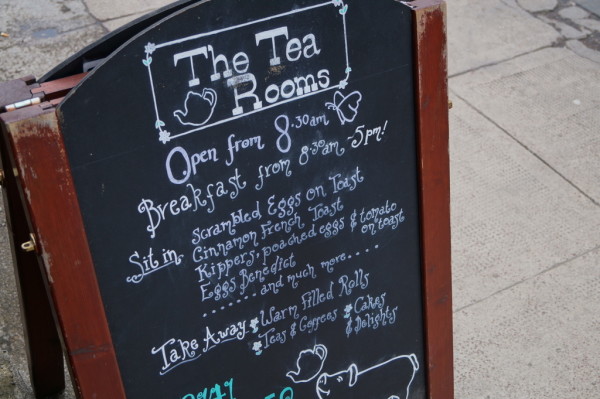 The Tea
Rooms
Open from 8.30am
Breakfast from 8.30am ~5pm!
Sit in
Scrambled Eggs on Toast
Cinnamon French Toast
Kippers, poached eggs & tomato
on toast
Eggs Benedict
....... and much more.....
Take Away
Warm Filled Rolls
Teas & Coffees
Cakes
& Delights